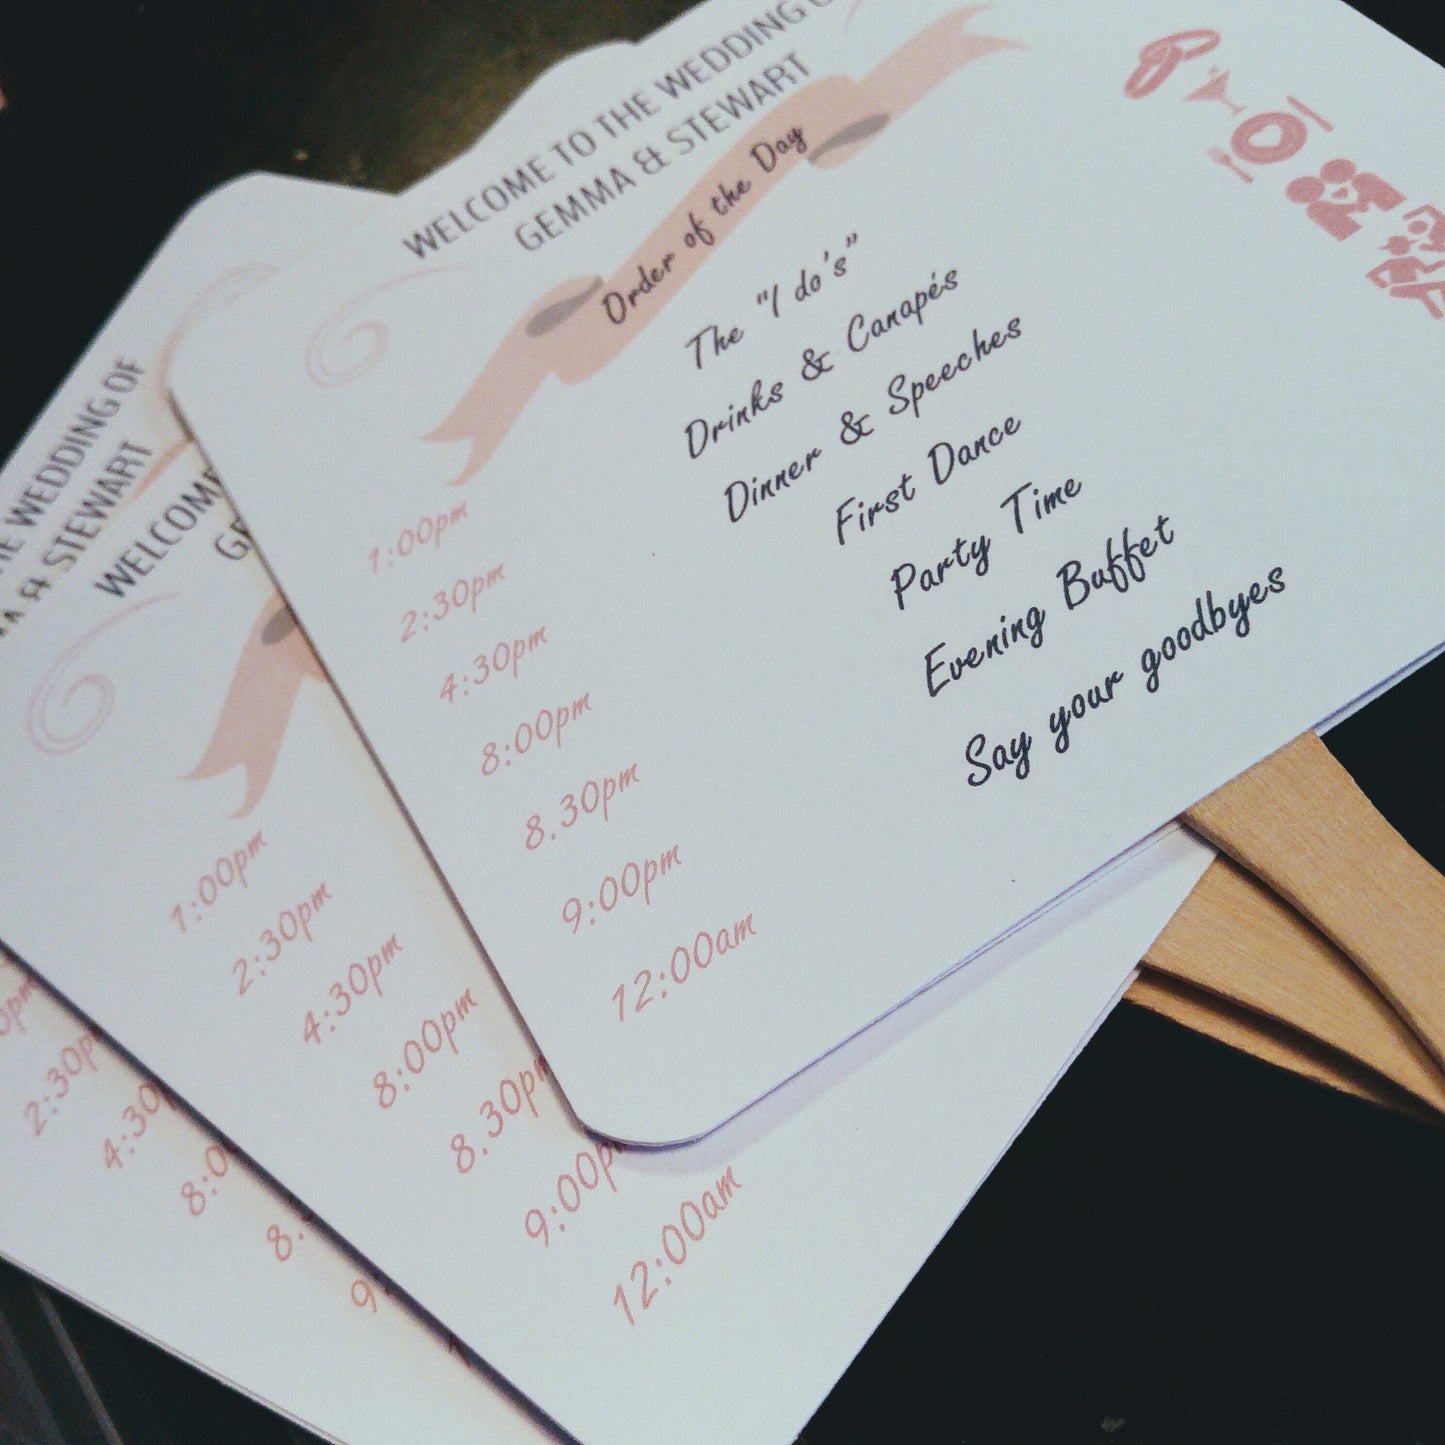 WELCOME TO THE WEDDING OF
GEMMA & STEWART
Order of the Day
1:00pm The "I do's"
2:30pm Drinks & Canapés
4:30pm Dinner & Speeches
8:00pm First Dance
8.30pm Party Time
9:00pm Evening Buffet
12:00am Say your goodbyes
WELCOME
1:00pm
2:30pm
4:30pm
8:00pm
8.30pm
9:00pm
12:00am
WEDDING OF
& STEWART
2:30pm
4:30
8:0
8.
9